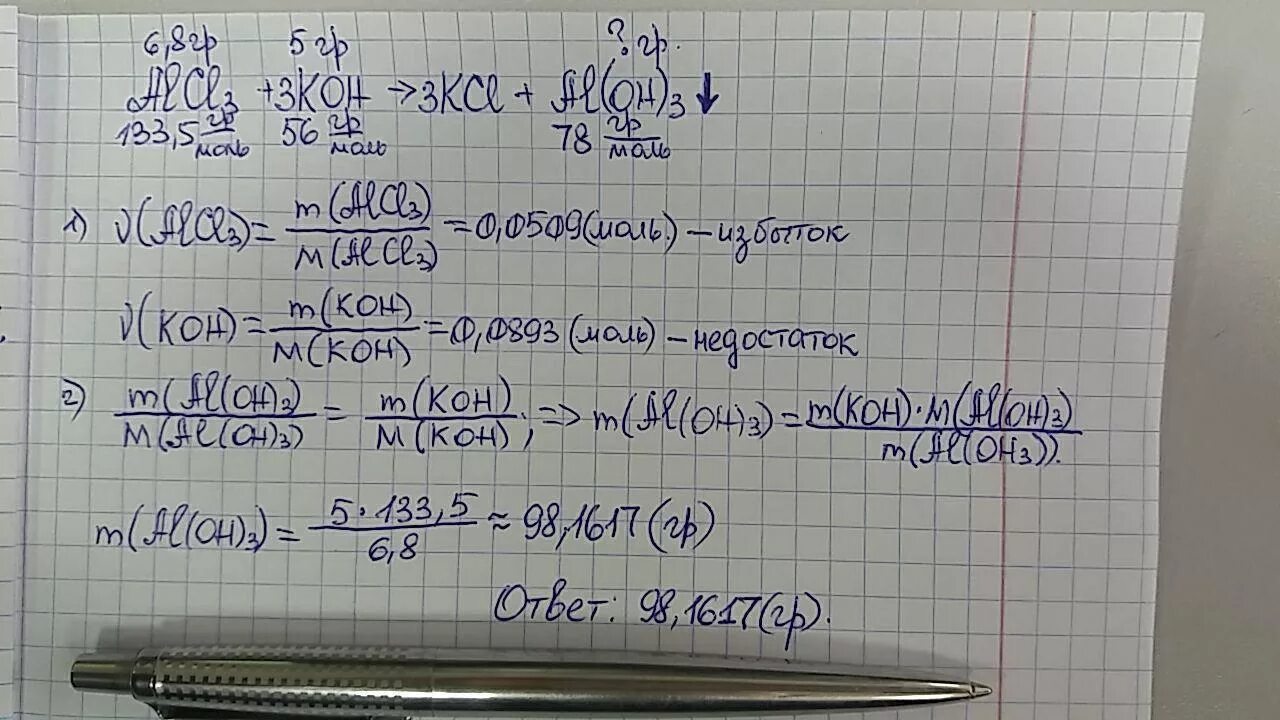 6,8гр 5 гр ? гр.
AlCl₃ + 3KOH → 3KCl + Al(OH)₃ ↓
133,5 гр/моль 56 гр/моль 78 гр/моль
1) ν(AlCl₃) = m(AlCl₃)/M(AlCl₃) = 0,0509(моль.) – избыток
ν(KOH) = m(KOH)/M(KOH) = 0,0893 (моль) – недостаток
2) m(Al(OH)₃)/M(Al(OH)₃) = m(KOH)/M(KOH); => m(Al(OH)₃) = m(KOH)·M(Al(OH)₃)/m(Al(OH₃)).
m(Al(OH)₃) = 5·133,5/6,8 ≈ 98,1617 (гр)
Ответ: 98,1617(гр).